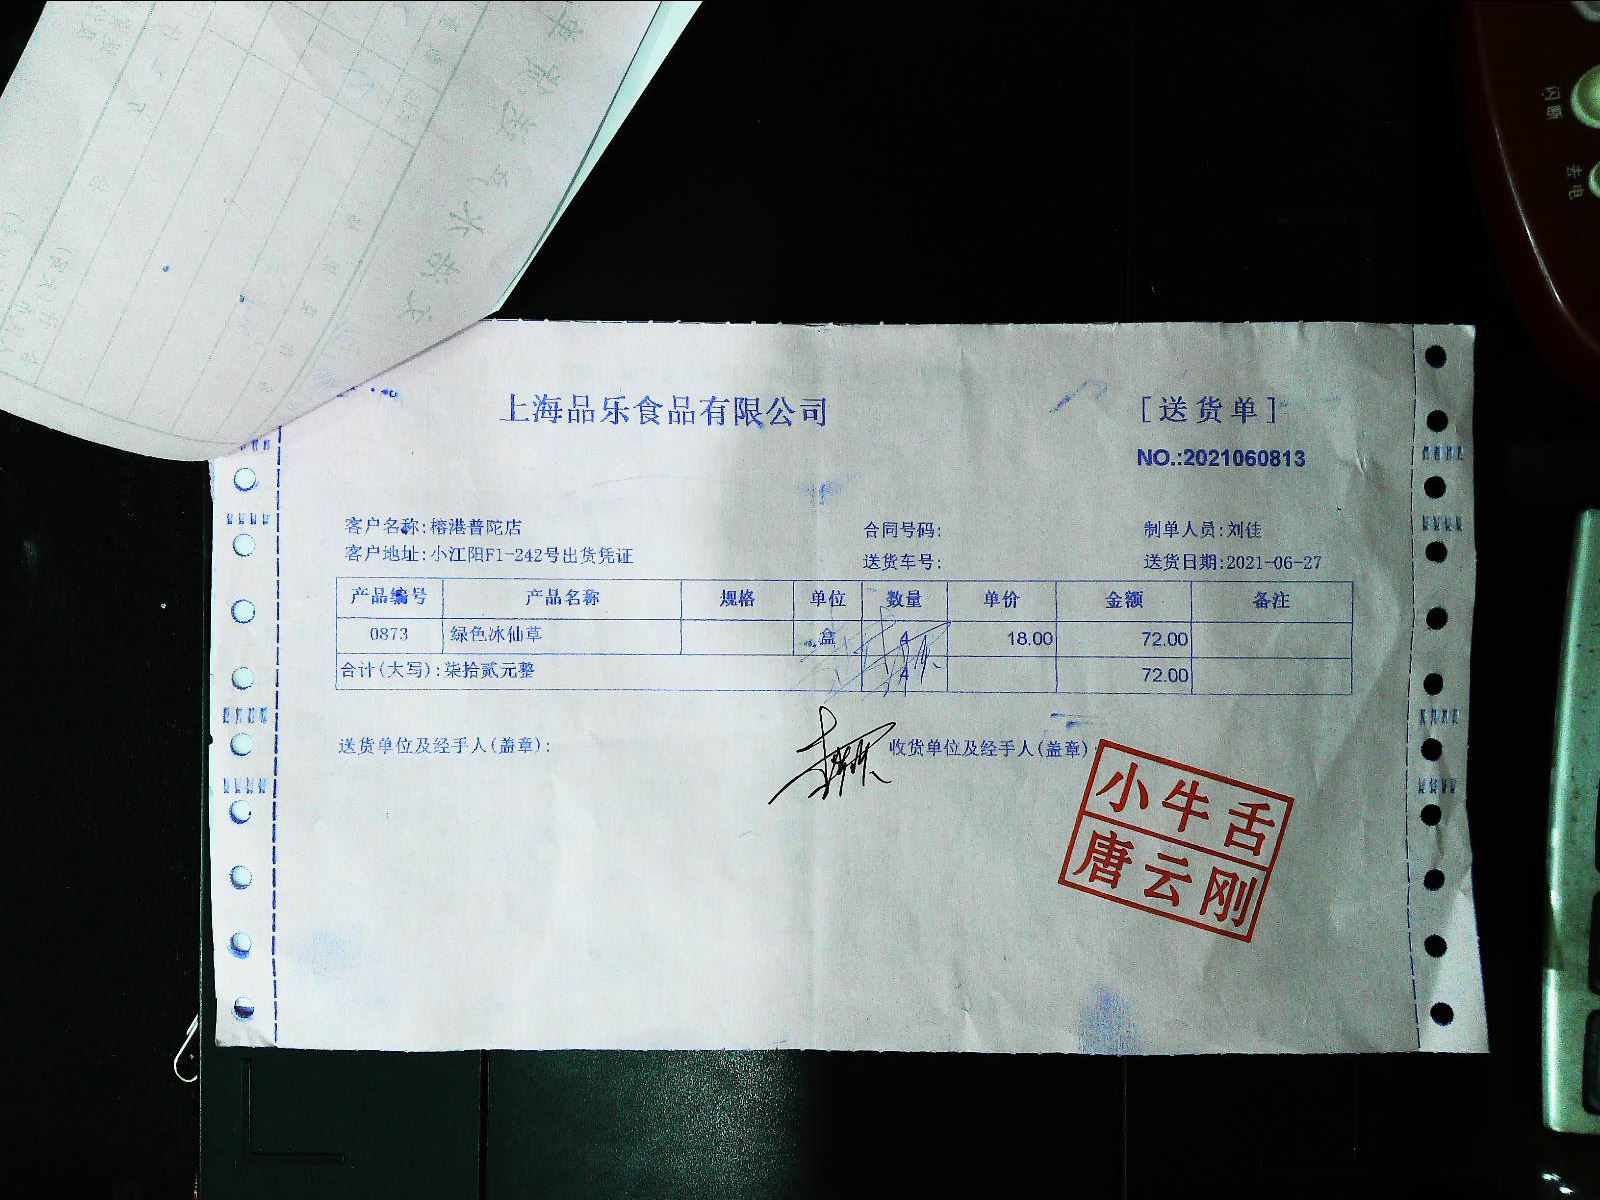 上海品乐食品有限公司
[送货单]
NO.:2021060813
客户名称:榕港普陀店 合同号码: 制单人员:刘佳
客户地址:小江阳F1-242号出货凭证 送货车号: 送货日期:2021-06-27
产品编号 产品名称 规格 单位 数量 单价 金额 备注
0873 绿色冰仙草 盒 4 18.00 72.00
合计(大写):柒拾贰元整 4 72.00
送货单位及经手人(盖章): 收货单位及经手人(盖章)
小牛舌
唐云刚
闪断
去电